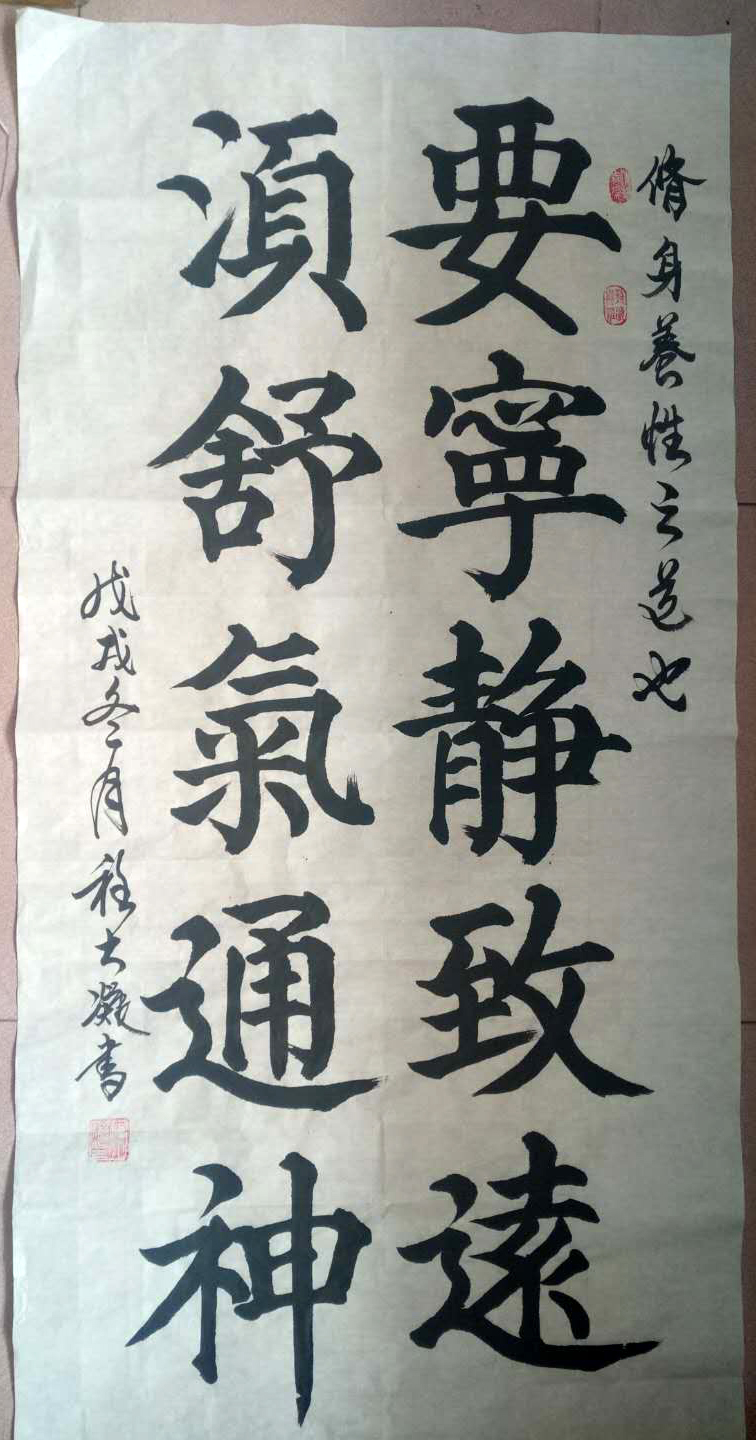 脩身養性之道也
要寧静致遠
湏舒氣通神
戊戌冬月程大凝書